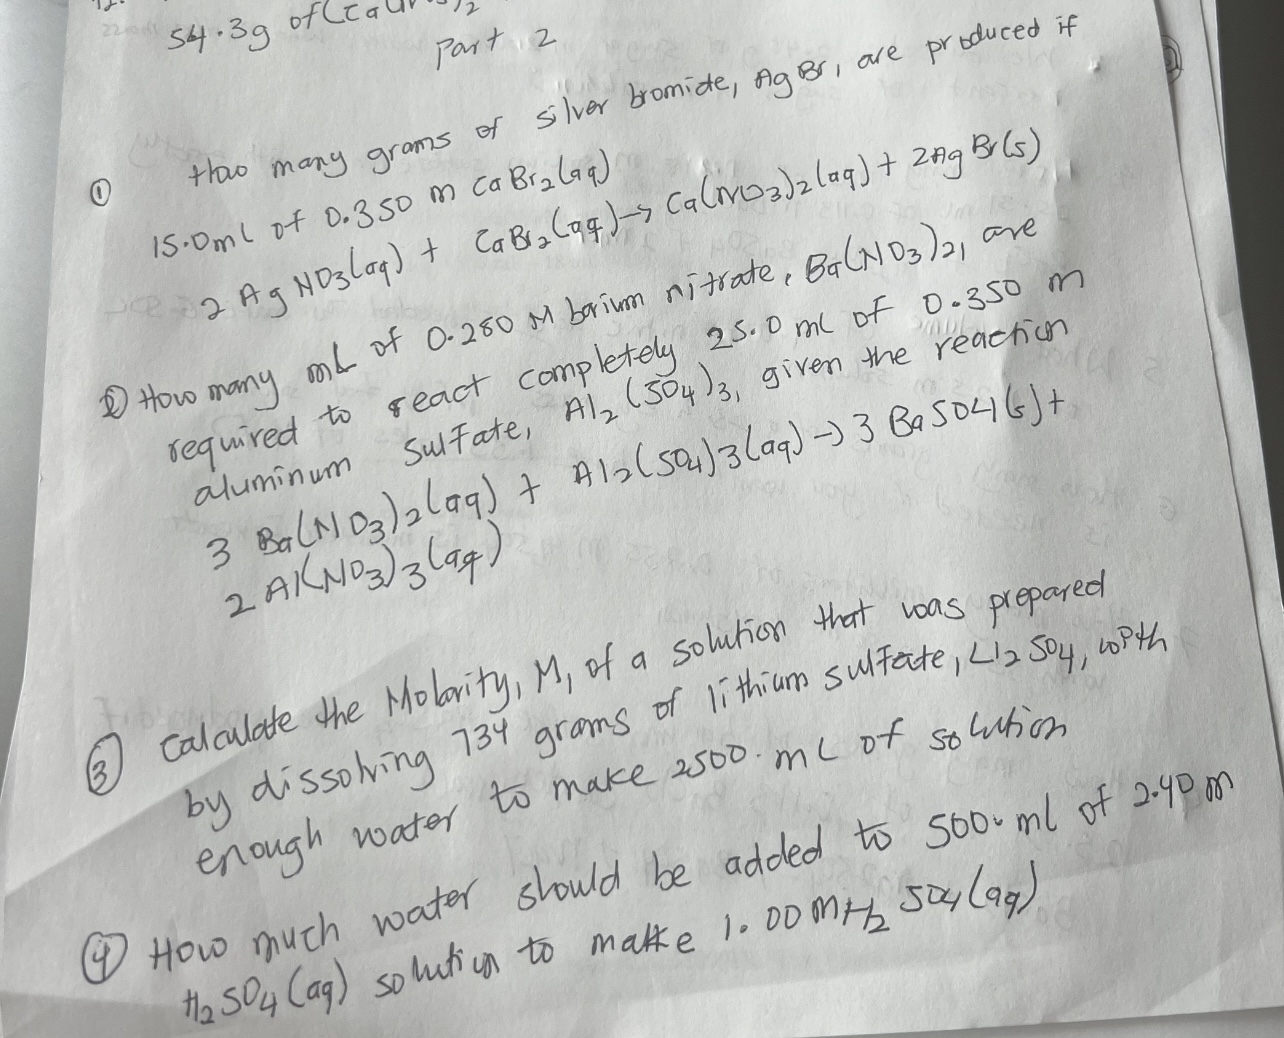 54.3g of
Part 2
① How many grams of silver bromide, AgBr, are produced if
15.0ml of 0.350 m CaBr2(aq)
2 AgNO3(aq) + CaBr2(aq) → Ca(NO3)2(aq) + 2AgBr(s)
② How many mL of 0.280 M barium nitrate, Ba(NO3)2, are
required to react completely 25.0 ml of 0.350 m
aluminum sulfate, Al2(SO4)3, given the reaction
3 Ba(NO3)2(aq) + Al2(SO4)3(aq) → 3 BaSO4(s) +
2 Al(NO3)3(aq)
③ Calculate the Molarity, M, of a solution that was prepared
by dissolving 734 grams of lithium sulfate, Li2SO4, with
enough water to make 2500. mL of solution
④ How much water should be added to 500. ml of 2.40 m
H2SO4(aq) solution to make 1.00 M H2SO4(aq)